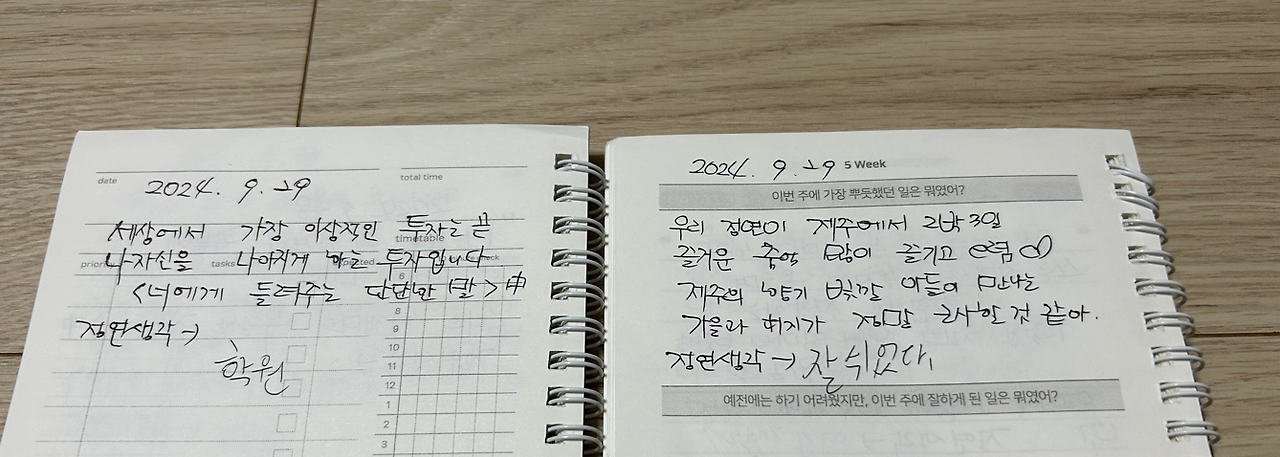 date 2024. 9. 29 total time
세상에서 가장 이상적인 투자는 끝
timetable
나 자신을 나아지게 하는 투자입니다
tasks
6
<너에게 들려주는 단단한 말> 中
8
정연생각→
9
10
학원
11
12
1
2
3
2024. 9. 29 5 Week
이번 주에 가장 뿌듯했던 일은 뭐였어?
우리 정연이 제주에서 2박3일
즐거운 추억 많이 즐기고 오렴
제주의 향기 빛깔 아들이 만나는
정말 근사할 것 같아.
정연생각 → 잘 쉬었다.
예전에는 하기 어려웠지만, 이번 주에 잘하게 된 일은 뭐였어?